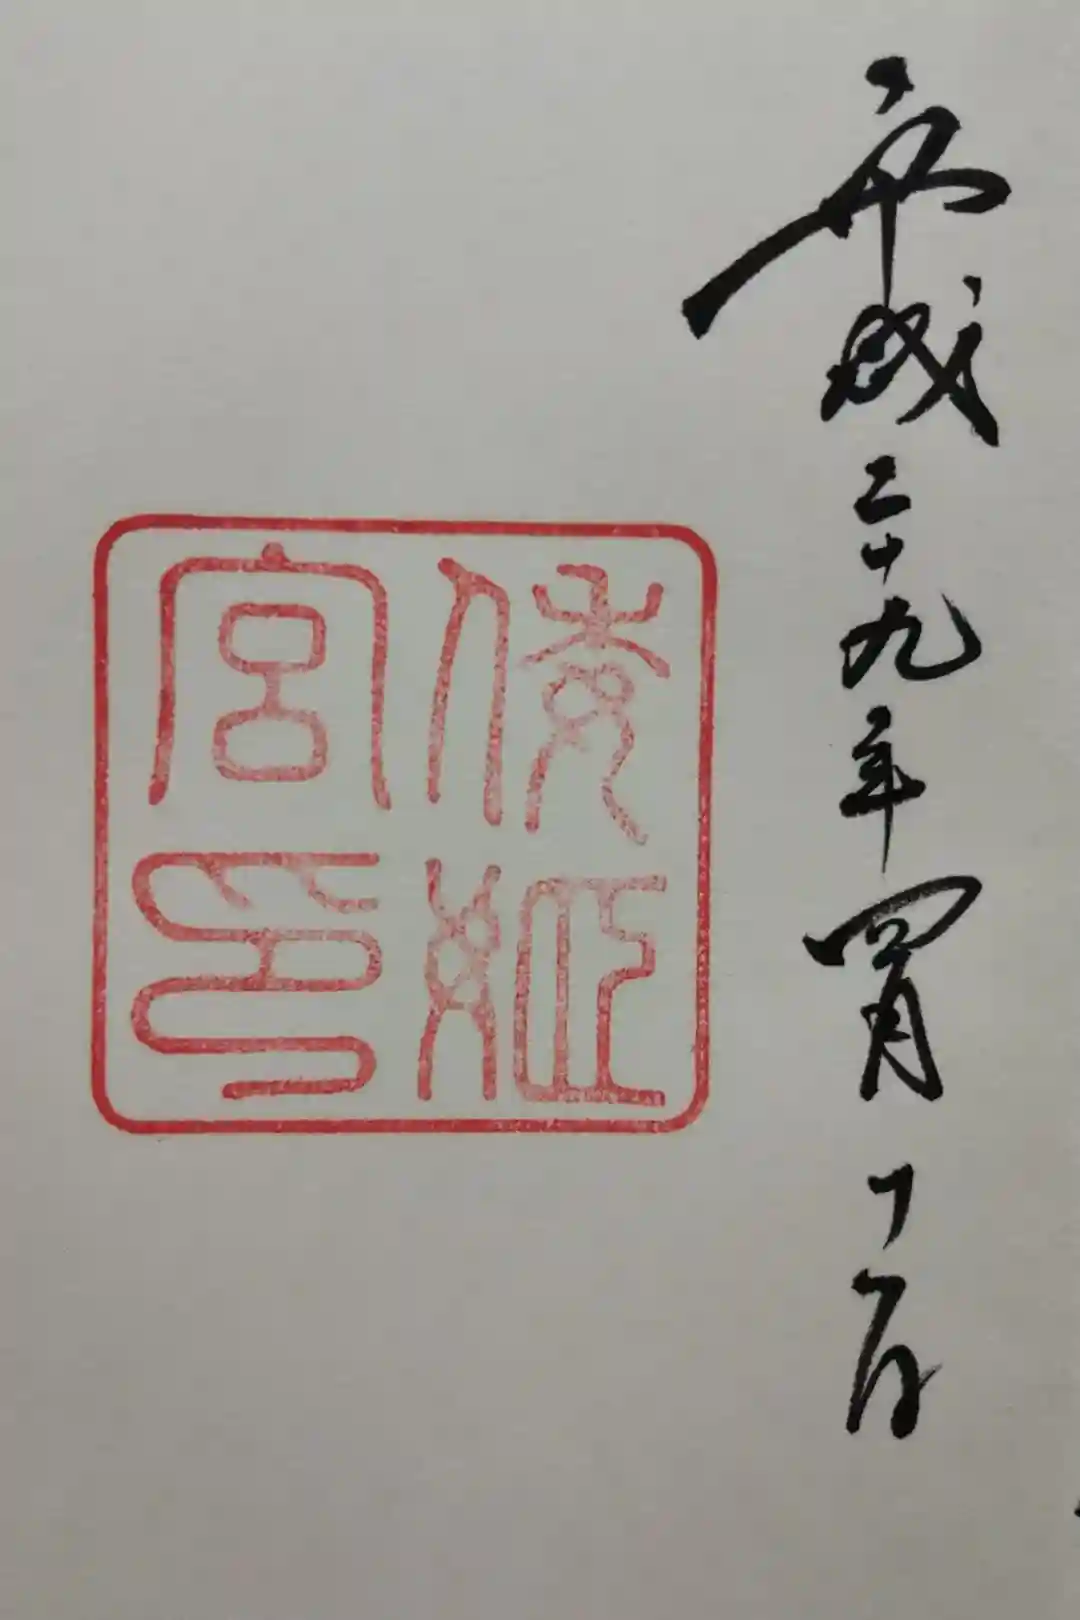 平成二十九年四月十一日
倭姫
宮印